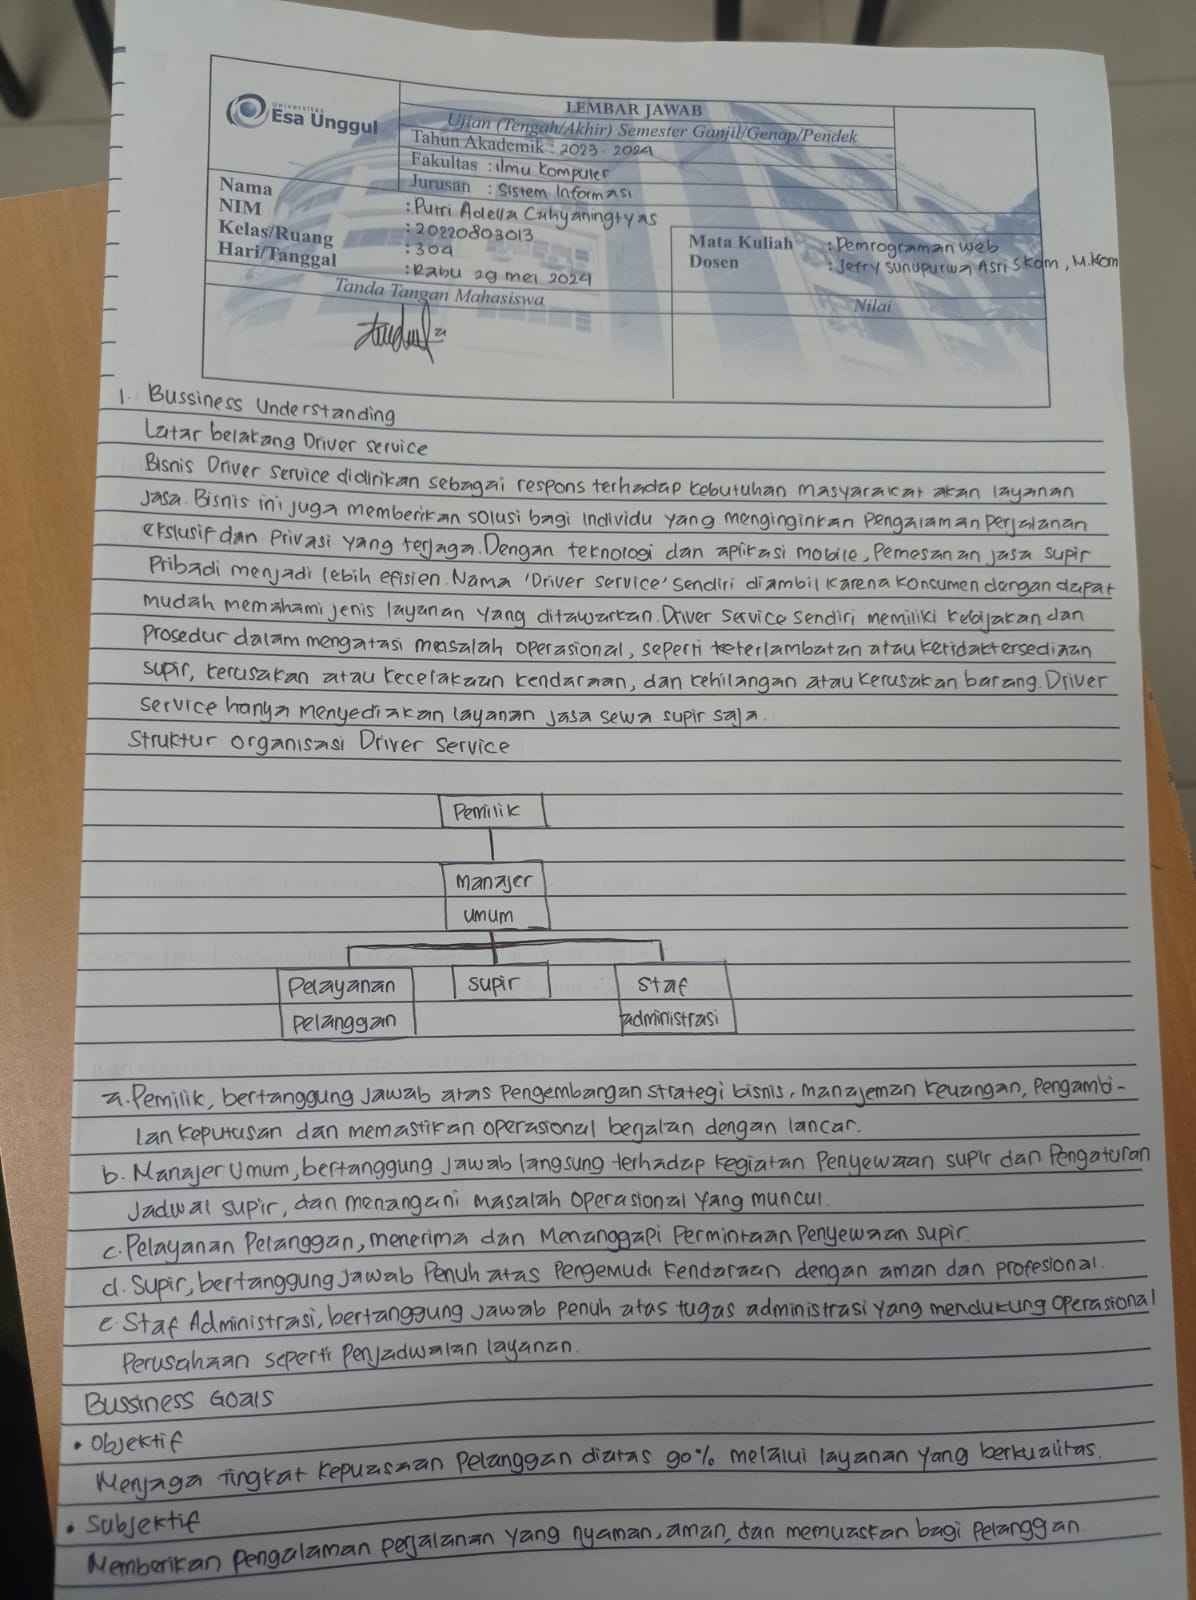 Universitas
Esa Unggul
LEMBAR JAWAB
Ujian (Tengah/Akhir) Semester Ganjil/Genap/Pendek
Tahun Akademik : 2023 - 2024
Fakultas : ilmu Komputer
Jurusan : Sistem Informasi
Nama : Putri Adella Cahyaningtyas
NIM : 20220803013
Kelas/Ruang : 304
Hari/Tanggal : Rabu 29 mei 2024
Mata Kuliah : Pemrograman web
Dosen : Jefry Sunupurwa Asri S.Kom, M.Kom
Tanda Tangan Mahasiswa
Nilai
1. Bussiness Understanding
Latar belakang Driver service
Bisnis Driver service didirikan sebagai respons terhadap kebutuhan masyarakat akan layanan
jasa. Bisnis ini juga memberikan solusi bagi individu yang menginginkan pengalaman perjalanan
ekslusif dan privasi yang terjaga. Dengan teknologi dan aplikasi mobile, pemesanan jasa supir
pribadi menjadi lebih efisien. Nama 'Driver service' sendiri diambil karena konsumen dengan dapat
mudah memahami jenis layanan yang ditawarkan. Driver service sendiri memiliki kebijakan dan
prosedur dalam mengatasi masalah operasional, seperti keterlambatan atau ketidaktersediaan
supir, kerusakan atau kecelakaan kendaraan, dan kehilangan atau kerusakan barang. Driver
service hanya menyediakan layanan jasa sewa supir saja.
Struktur organisasi Driver service
Pemilik
Manajer
umum
Pelayanan
pelanggan
supir
Staf
administrasi
a. Pemilik, bertanggung jawab atas pengembangan strategi bisnis, manajeman keuangan, pengambi-
lan keputusan dan memastikan operasional begalan dengan lancar.
b. Manajer Umum, bertanggung jawab langsung terhadap kegiatan penyewaan supir dan pengaturan
jadwal supir, dan menangani masalah operasional yang muncul.
c. Pelayanan Pelanggan, menerima dan menanggapi permintaan penyewaan supir.
d. Supir, bertanggung jawab penuh atas pengemudi kendaraan dengan aman dan profesional.
e. Staf Administrasi, bertanggung jawab penuh atas tugas administrasi yang mendukung operasional
perusahaan seperti penjadwalan layanan.
Bussiness Goals
• Objektif
Menjaga tingkat kepuasaan pelanggan diatas 90% melalui layanan yang berkualitas.
• Subjektif
Memberikan pengalaman perjalanan yang nyaman, aman, dan memuaskan bagi pelanggan.